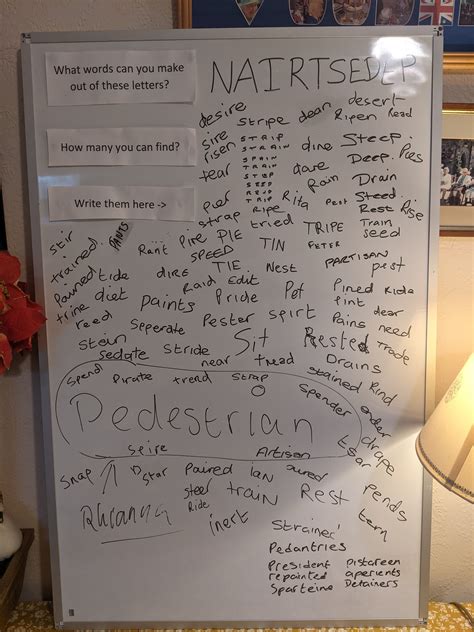 What words can you make
out of these letters?
NAIRTSEDEP
How many you can find?
Write them here ->
desire stripe dean desert
sire STRIP Ripen Read
risen STRAIN dine Steep.
SPAIN Deep. Pies
tear TRAIN
STEP Rain Drain
SEED
pier REED Rita Pest Steed. Rise
TRIP Rest
strap Ripe tried TRIPE Train
stir PANTS seed
trained Rant Pire PIE TIN PETER PARTISAN
SPEED pest
Pawned tide dire TIE Nest
trine diet Raid Edit Pined
reed paints Pride Pet pint dear
Seperate Pester spirt Pains need
stain Sit Rested Trade
sedate Stride near tread Drains
stained Rind
Spend Pirate trend Strap Spender
drape
Pedestrian
tsar
Seire Artisan
snap Star Paired Ian pends
steer train Rest tern
Ride
inert
Strained
Pedantries
President Pistareen
repainted aperients
Sparteine Detainers